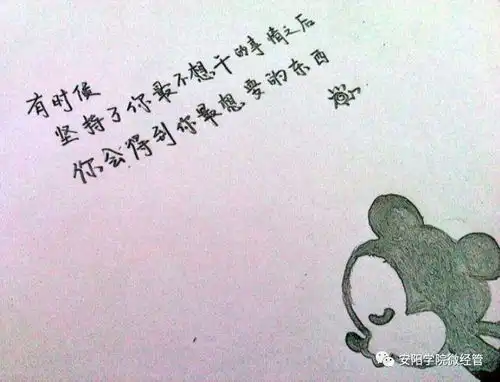 有时候
坚持了你最不想干的事情之后
你会得到你最想要的东西
安阳学院微经管